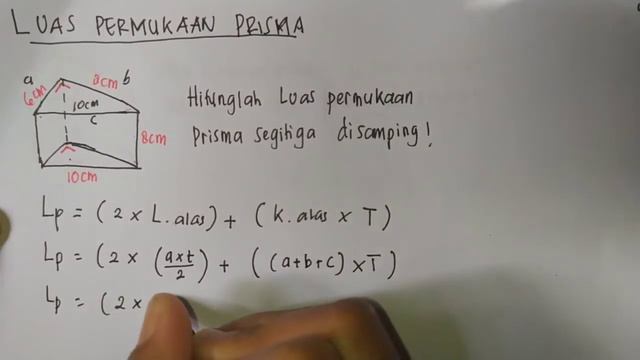 LUAS PERMUKAAN PRISMA
a
6cm
8cm
b
10cm
c
8cm
10cm
Hitunglah Luas permukaan
Prisma segitiga disamping!
Lp = (2 x L.alas) + (k.alas x T)
Lp = (2 x (axt/2) + ((a+b+c) xT)
Lp = (2x